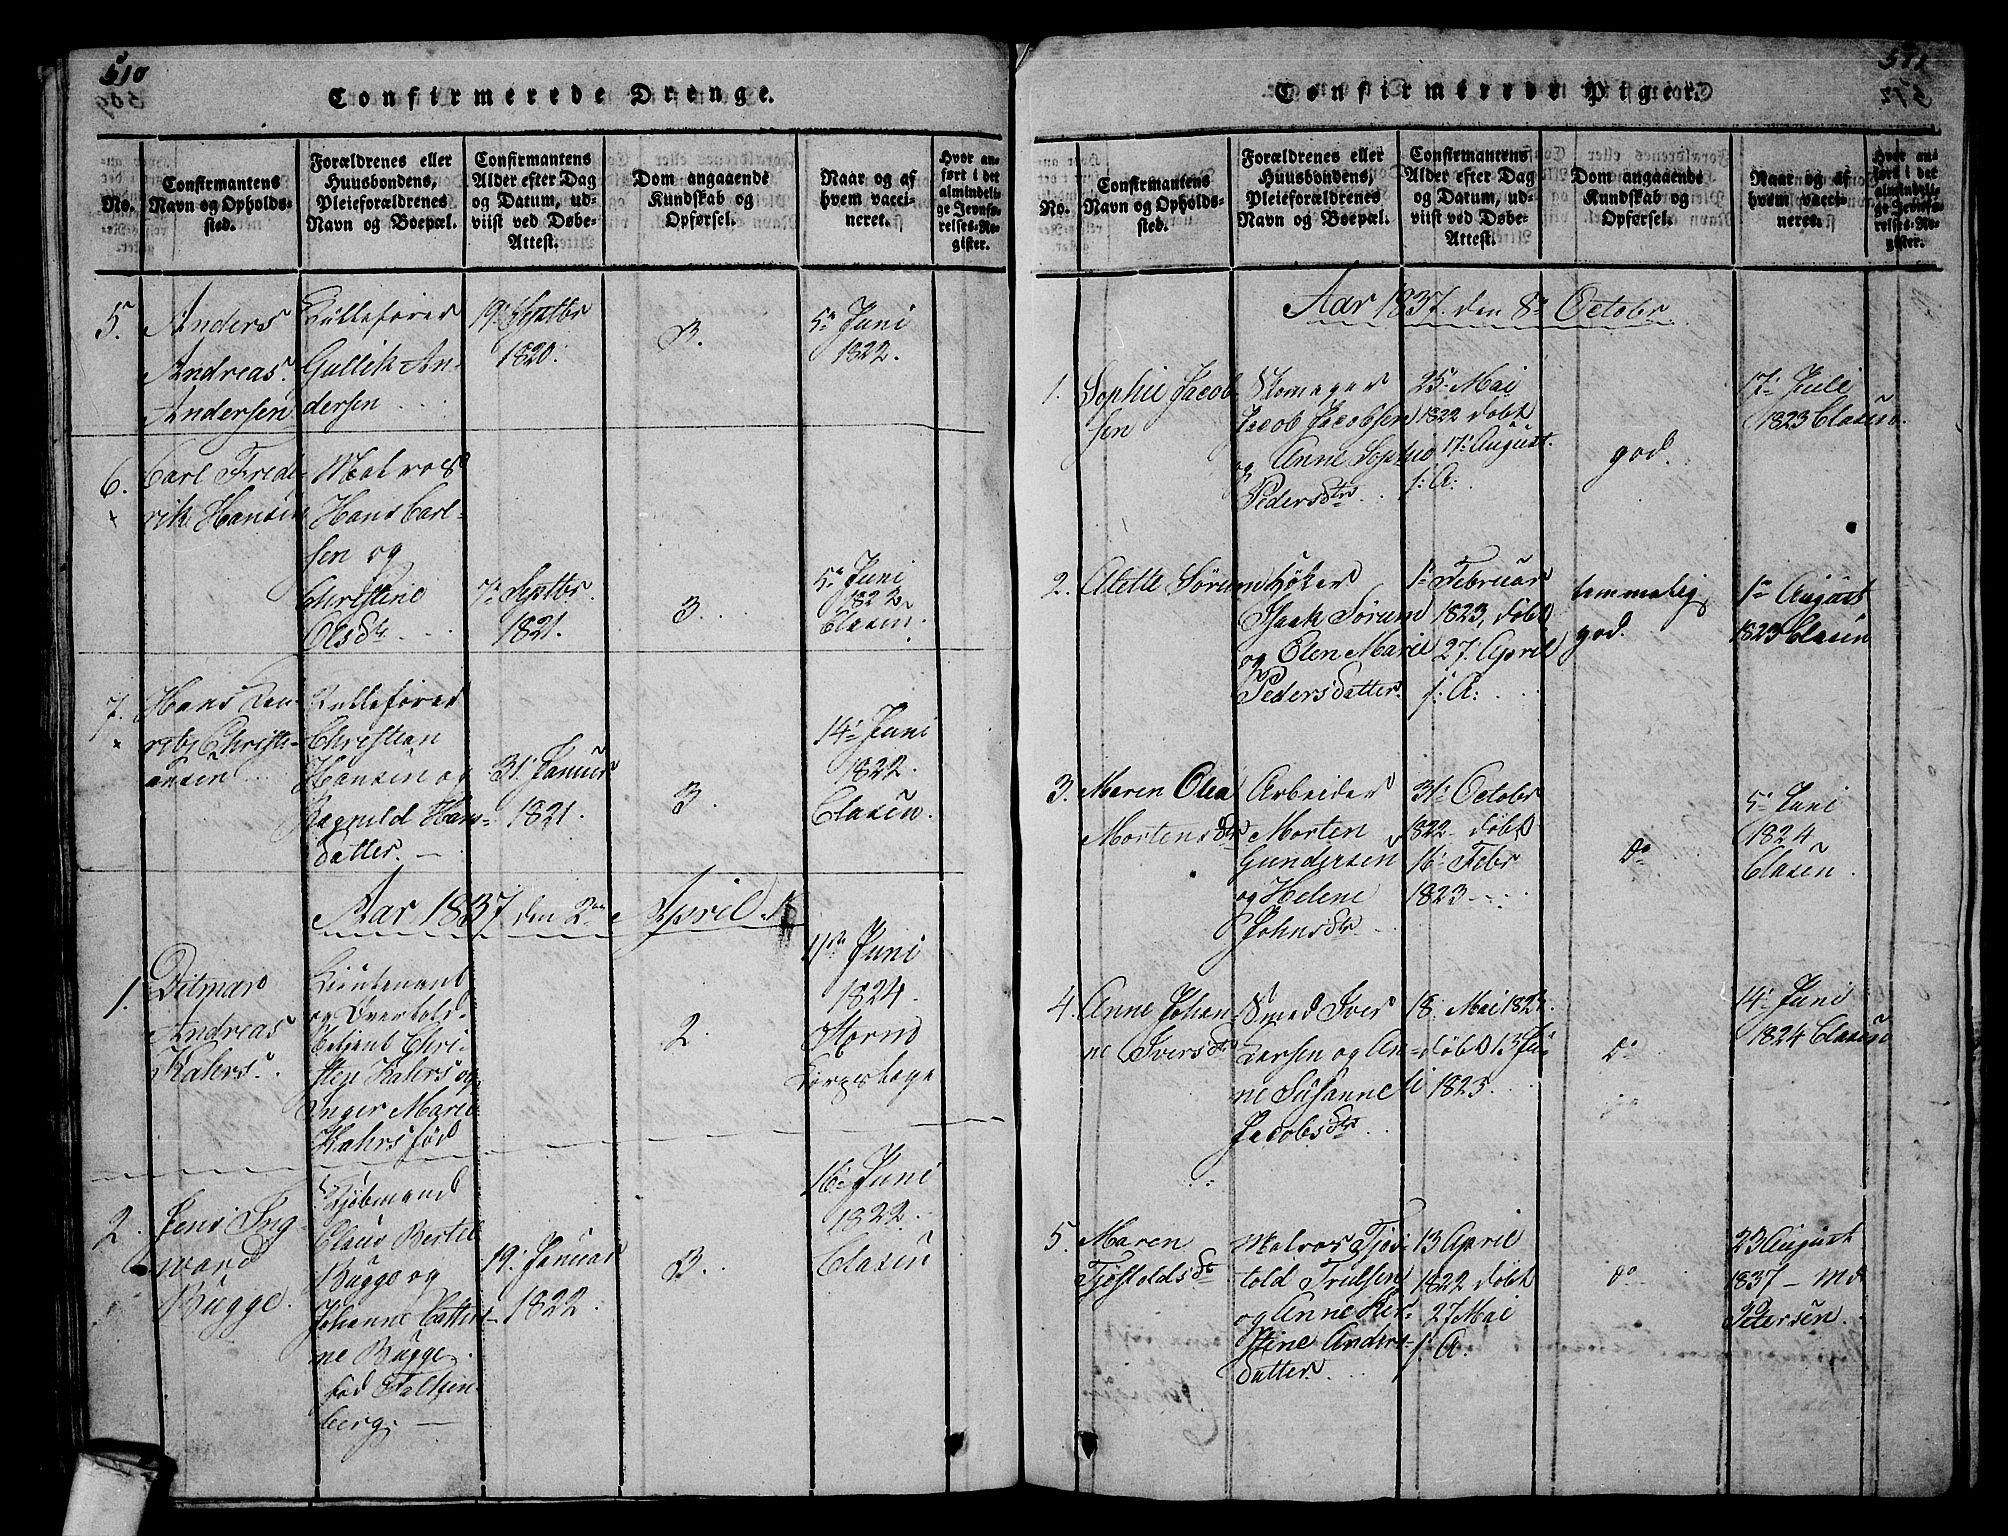 510
Confirmerede Drenge.
No.
Confirmantens
Navn og Opholds-
sted.
Forældrenes eller
Huusbondens,
Pleieforældrenes
Navn og Boepæl.
Confirmantens
Alder efter Dag
og Datum, ud-
viist ved Døbe-
Attest.
Dom angaaende
Kundskab og
Opførsel.
Naar og af
hvem vacci-
neret.
Hvor an-
ført i det
almindeli-
ge Jevnfø-
relses-Re-
gister.
5.
Anders
Andreas
Andersen
Gullik An-
dersen
19. Septbr
1820.
3.
5te Juni
1822.
6.
Carl Frede-
rik Hansen
Matros
Hans Carl-
sen og
Christine
Olsdtr
7de Septbr.
1821.
3.
5te Juni
1822
Clasen
7.
Hans Hen-
rik Christi-
ansen
Christian
Hansen og
Ragnild Hans-
datter.
31. Januar
1821.
3.
14. Juni
1822.
Clasen.
Aar 1837 den 2den April
1.
Ditmar
Andreas
Kahrs.
Lieutenant
og Overtold-
betjent Chri-
sten Kahrs og
Inger Marie
Kahrs fød
2.
11te Juni
1824.
2.
Jens Ing-
ward
Bugge.
Kjøbmand
Claus Bertel
Bugge og
Johanne Cathri-
ne Bugge
fød Falken-
berg.
19. Januar
1822.
3.
16. Juni
1822.
Clasen
511
Confirmerede Piger.
No.
Confirmantens
Navn og Opholds-
sted.
Forældrenes eller
Huusbondens,
Pleieforældrenes
Navn og Boepæl.
Confirmantens
Alder efter Dag
og Datum, ud-
viist ved Døbe-
Attest.
Dom angaaende
Kundskab og
Opførsel.
Naar og af
hvem vacci-
neret.
Hvor an-
ført i det
almindeli-
ge Jevnfø-
relses-Re-
gister.
Aar 1837. den 8de Octobr
1.
Sophie Jacob-
sen
Skomager
Jacob Jacobsen
og Anne Sophie
Pedersdtr
25. Mai
1822 døbt
17. August.
f: A:
god.
17. Juli
1823 Clasen.
2.
Alette Sørum
Høker
Isaak Sørum
og Olen Marie
Pedersdatter.
1ste Februar
1823, døbt
27. April
f: A:
temmelig
god.
1ste August
1823 Clasen
3.
Maren Olea
Mortensdtr
Arbeider
Morten
Gundersen
og Helene
Johnsdtr
31. Octobr
1822 døbt
16. Febr
1823
do
5te Juni
1824
Clasen.
4.
Anne Johan-
ne Iversdtr
Smed Iver
Larsen og An-
ne Susanne
Jacobsdtr
18. Mai 1823.
døbt 13 Ju-
li 1823.
do
14. Juni
1824 Clasen
5.
Maren
Tjostoldsdtr
Matros Tjos-
told Trulsen
og Anne Kir-
stine Anders-
datter.
13 April
1822 døbt
27 Mai
f: A.
do
23 August
1837 - Md
Petersen.